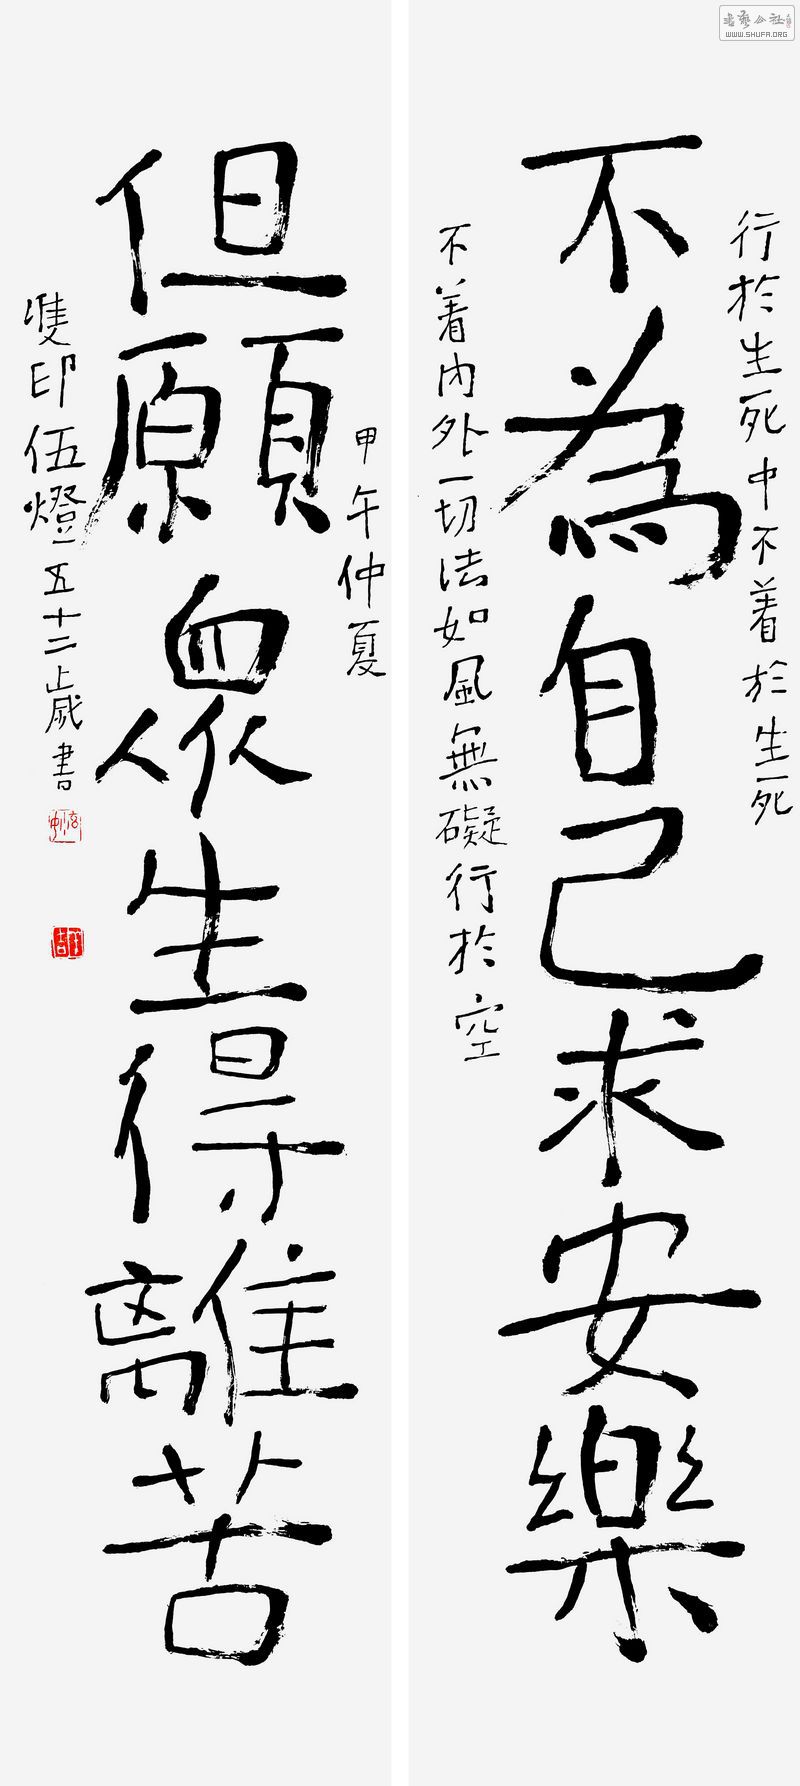 行於生死中不着於生死
不為自己求安樂
不着內外一切法如風無礙行於空
甲午仲夏
但願眾生得離苦
雙印伍燈一五十二歲書
書藝公社
WWW.SHUFA.ORG